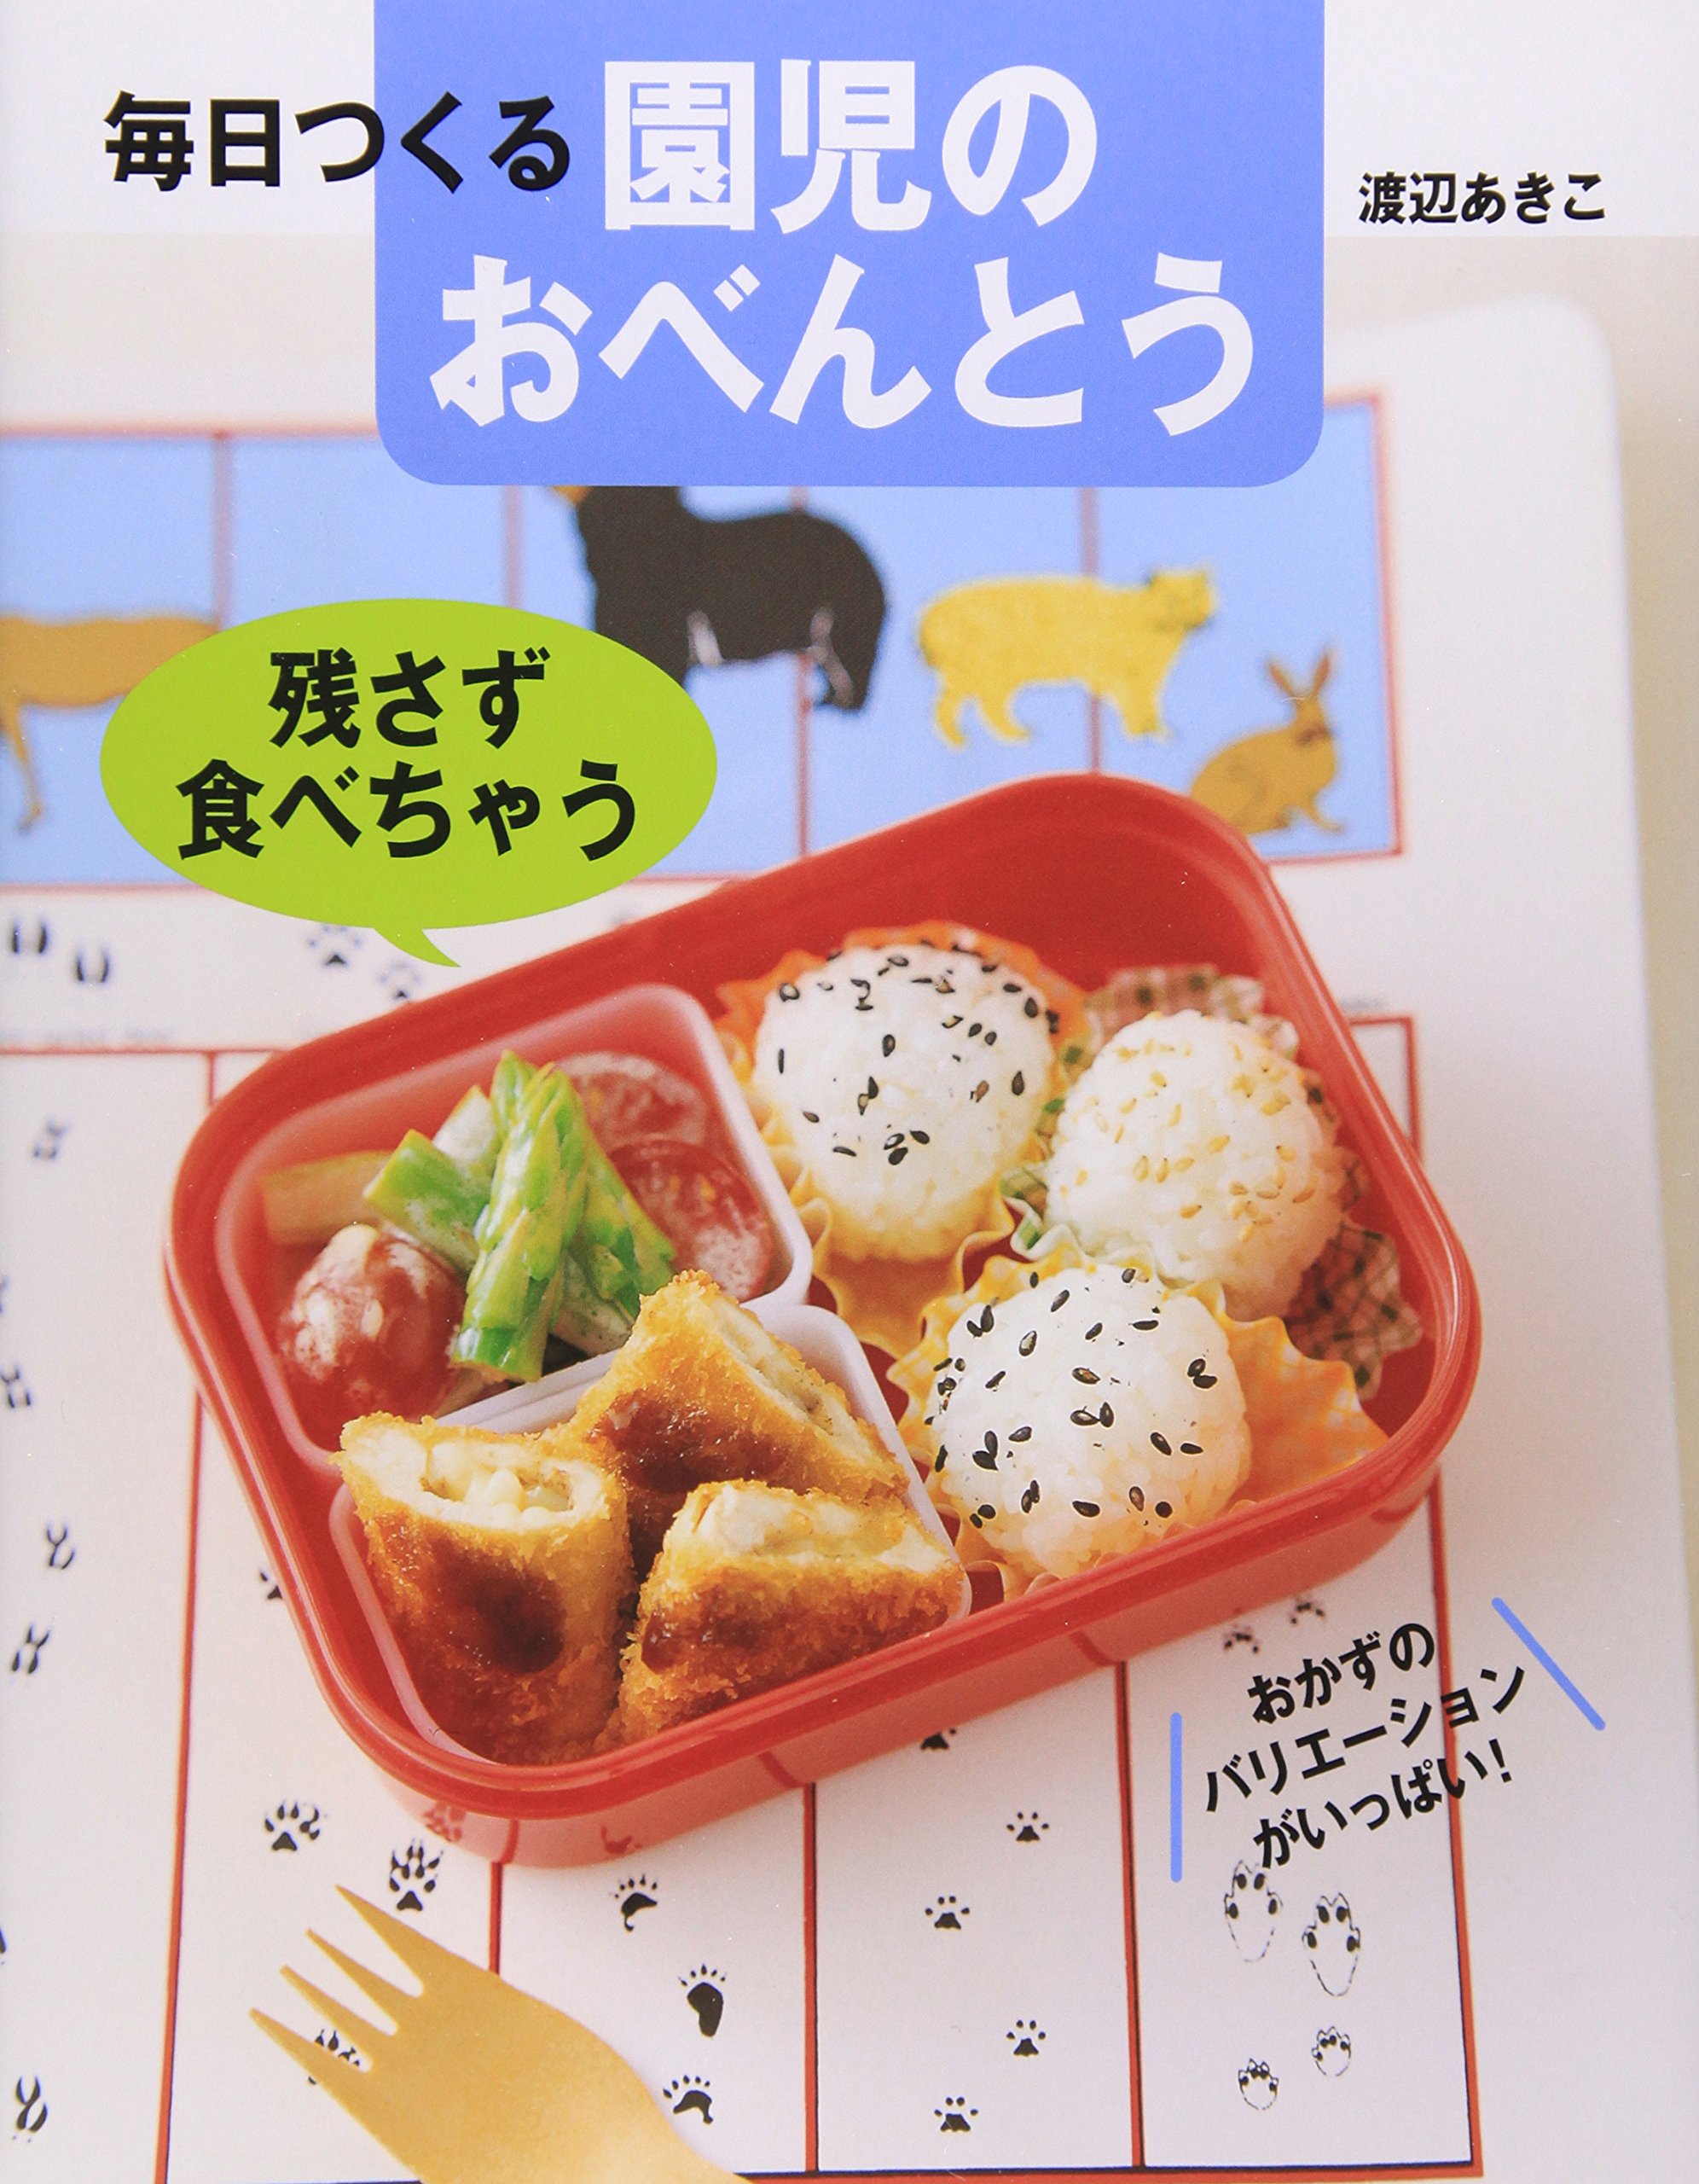 毎日つくる 園児の
おべんとう
渡辺あきこ
残さず
食べちゃう
おかずの
バリエーション
がいっぱい!